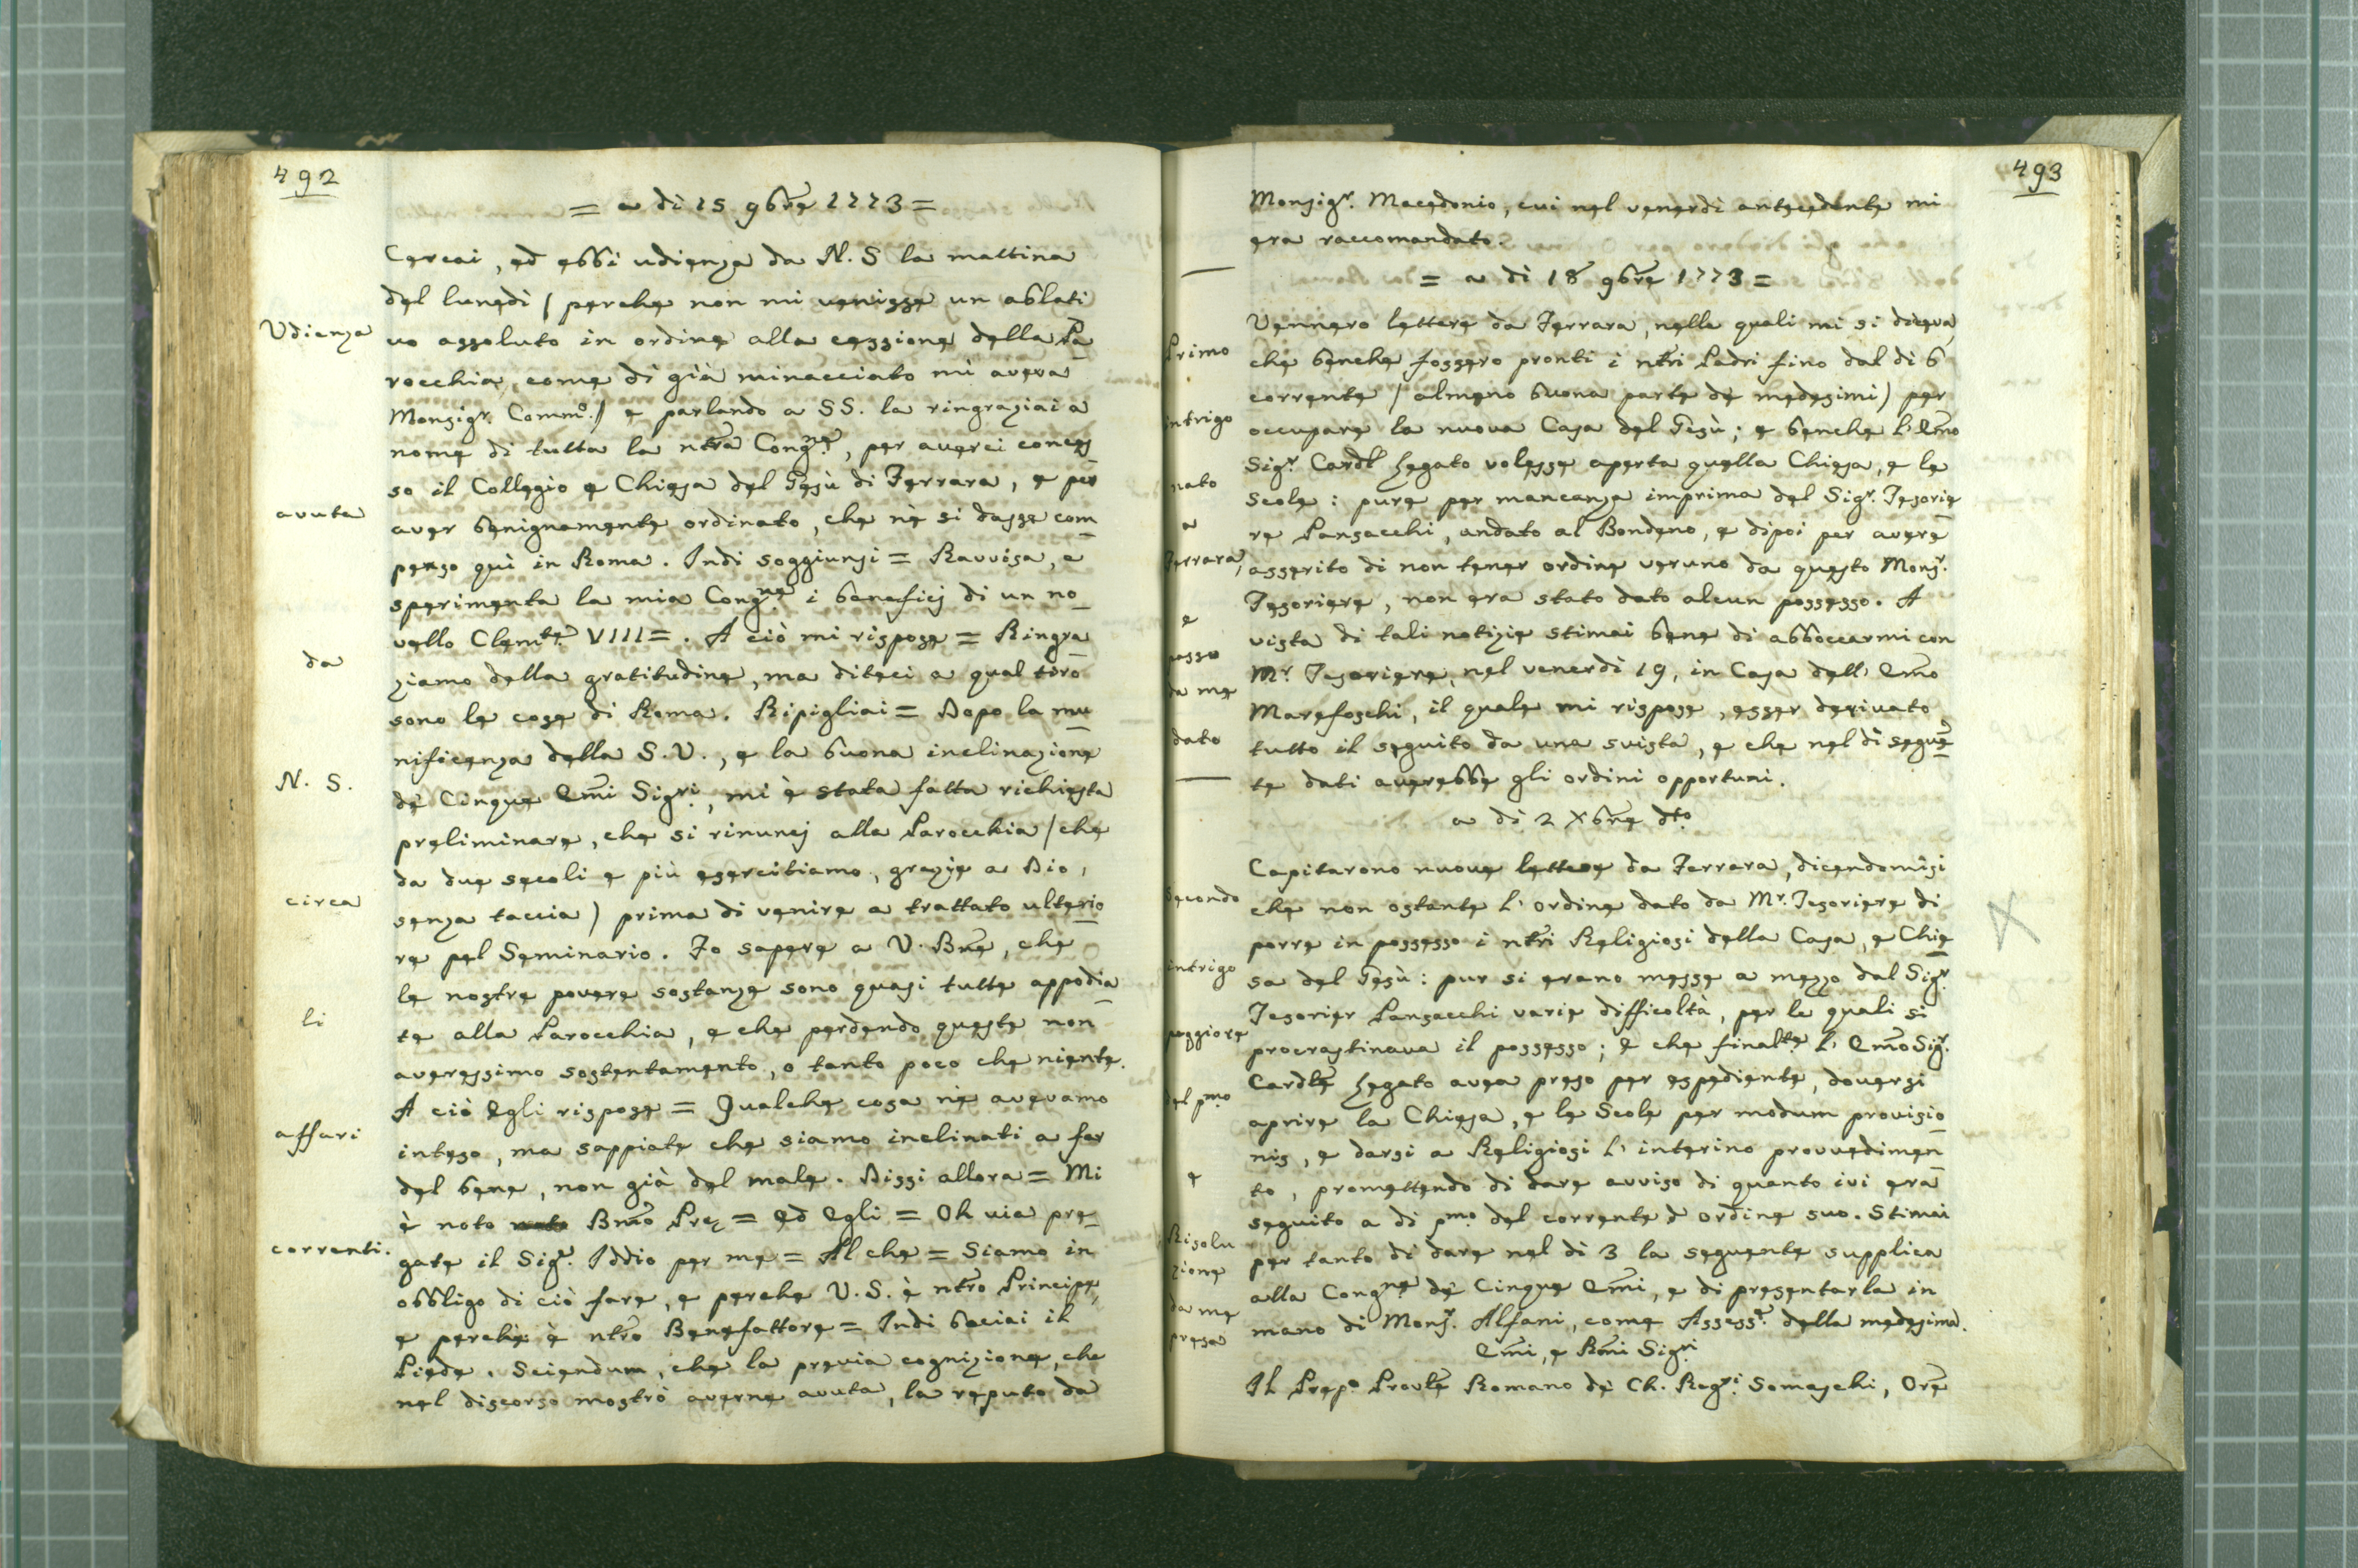 492
= a di 15 9bre 1773 =
Cercai, ed ebbi udienza da N. S la mattina
del lunedì / perche non mi venisse un ablati
Udienza
vo assoluto in ordine alla cessione della Pa
rocchia, come di già minacciato mi aveva
Monsigr. Commo. / e parlando a SS. la ringraziai a
nome di tutta la ntra Congne, per averci conces
so il Collegio e Chiesa del Gesù di Ferrara, e per
avuta
aver benignamente ordinato, che nè si dasse com
penso quì in Roma. Indi soggiunsi = Ravvisa, e
sperimenta la mia Congne i beneficj di un no
vello Clemte VIII =. A ciò mi rispose = Ringra
da
ziamo della gratitudine, ma diteci a qual tiro
sono le cose di Roma. Ripigliai = Dopo la mu
nificenza della S. V., e la buona inclinazione
N. S.
dè Cinque Emi Sigri, mi è stata fatta richiesta
preliminare, che si rinuncj alla Parocchia / che
da due secoli e più esercitiamo, grazie a Dio,
circa
senza taccia) prima di venire a trattato ulterio
re pel Seminario. Fo sapere a V. Bne, che
le nostre povere sostanze sono quasi tutte appodia
li
te alla Parocchia, e che perdendo queste non
averessimo sostentamento, o tanto poco che niente.
A ciò Egli rispose = Qualche cosa nè avevamo
affari
inteso, ma sappiate che siamo inclinati a far
del bene, non già del male. Dissi allora = Mi
è noto Bmo Pre = ed Egli = Oh via pre
correnti.
gate il Sigr. Iddio per me = Al che = Siamo in
obbligo di ciò fare, e perche V. S. è ntro Principe,
e perchè è ntro Benefattore = Indi baciai il
Piede. Sciendum, che la previa cognizione, che
nel discorso mostrò averne avuta, la reputo da
493
Monsigr. Macedonio, cui nel venerdì antecedente mi
era raccomandato.
= a di 18 9bre 1773 =
Vennero lettere da Ferrara, nelle quali mi si diceva,
Primo
che benche fossero pronti i ntri Padri fino dal di 6
corrente / almeno buona parte dè medesimi) per
intrigo
occupare la nuova Casa del Gesù; e benche l' Emo
Sigr. Cardl Legato volesse aperta quella Chiesa, e le
nato
Scole: pure per mancanza imprima del Sigr. Tesorie
a
re Pansacchi, andato al Bondeno, e dipoi per avere
Ferrara,
asserito di non tener ordine veruno da questo Monsr.
Tesoriere, non era stato dato alcun possesso. A
e
vista di tali notizie stimai bene di abboccarmi con
passo
Mr. Tesoriere, nel venerdì 19, in Casa dell' Emo
da me
Marefoschi, il quale mi rispose, esser derivato
dato
tutto il seguito da una svista, e che nel dì seguen
te dati averebbe gli ordini opportuni.
a di 2 Xbre dto
Capitarono nuove lettere da Ferrara, dicendomisi
Secondo
che non ostante l' ordine dato da Mr. Tesoriere di
porre in possesso i ntri Religiosi della Casa, e Chie
intrigo
sa del Gesù: pur si erano messe a mezzo dal Sigr.
Tesorier Pansacchi varie difficoltà, per le quali si
peggiore
procrastinava il possesso; e che finalte l' Emo Sigr.
Cardle Legato avea preso per espediente, doversi
del pmo
aprire la Chiesa, e le Scole per modum provisio
nis, e darsi a Religiosi l' interino provvedimen
e
to, promettendo di dare avviso di quanto ivi era
seguito a di pmo del corrente d' ordine suo. Stimai
Risolu
per tanto di dare nel dì 3 la seguente supplica
zione
alla Congne dè Cinque Emi, e di presentarla in
da me
mano di Monsr. Alfani, come Assessr. della medesima.
presa
Emi, e Rmi Sigri
Il Prepo Provle Romano dè Ch. Regri Somaschi, Ore